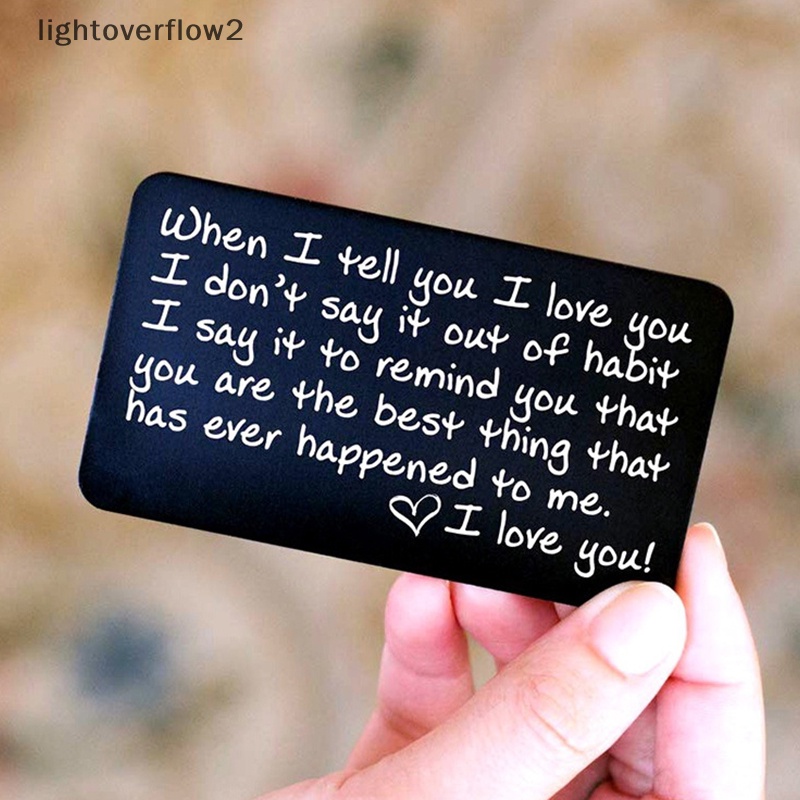 lightoverflow2
When I tell you I love you
I don't say it out of habit
I say it to remind you that
you are the best thing that
has ever happened to me.
♡ I love you!